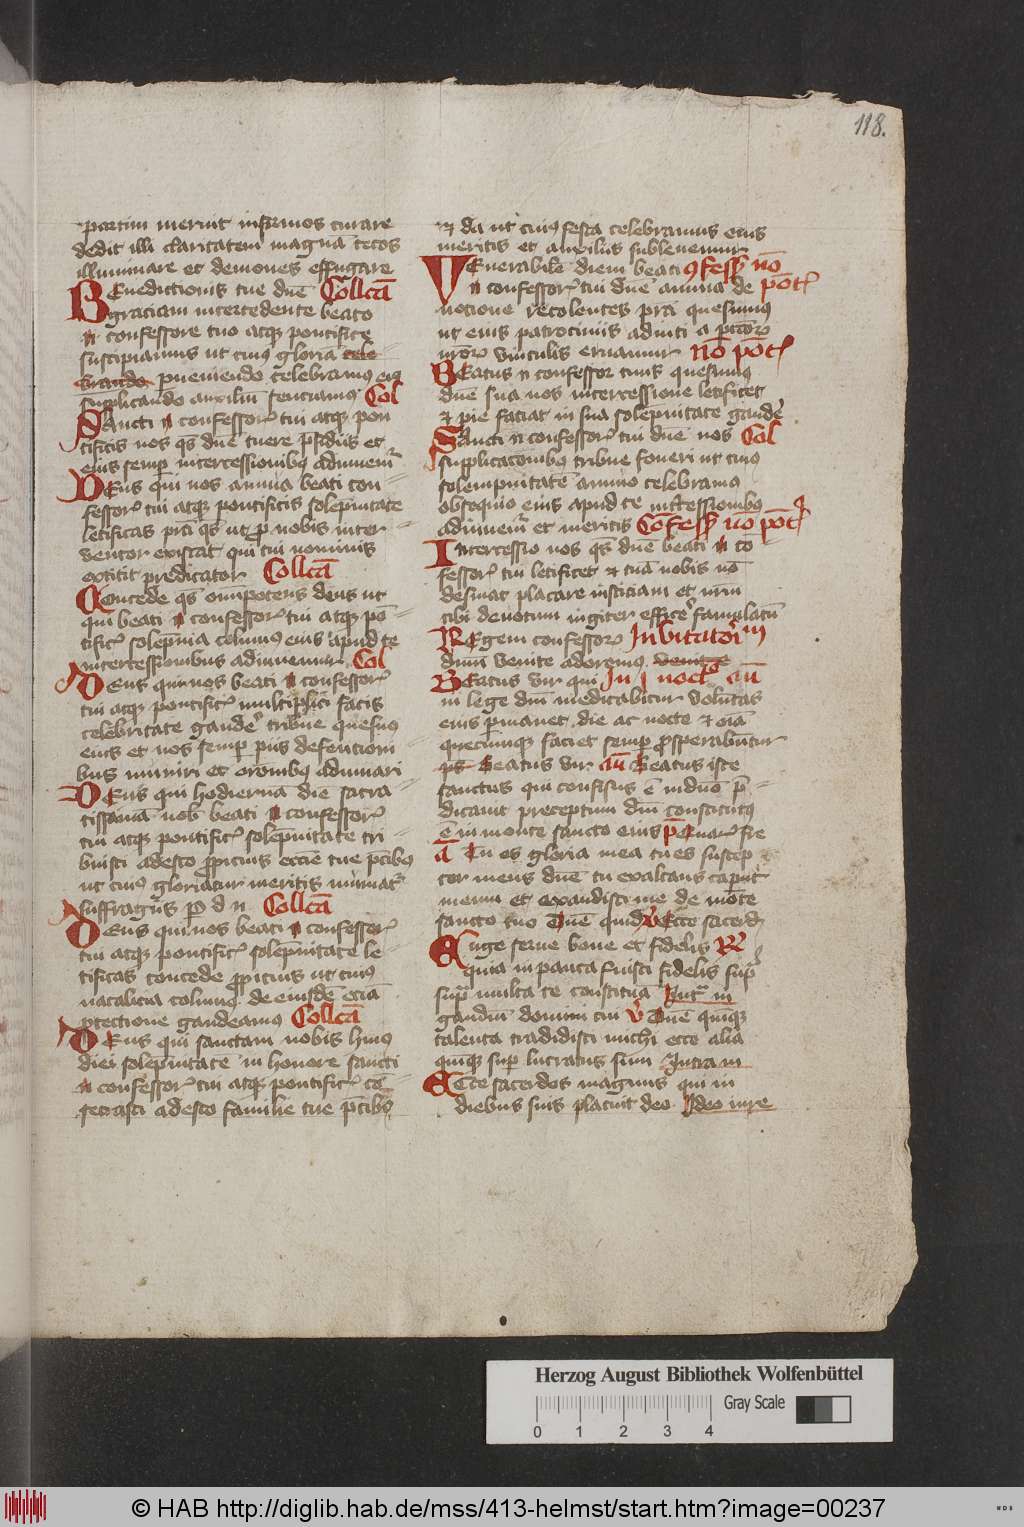 118.
portim meruit infirmos curare
dedit illi claritatem magnā cecos
illuminare et demones effugare
Benedictionis tue dn̄e Collcā
graciam intercedente beato
n confessore tuo atqꝫ pontifice
suscipiamus ut cuiꝯ gloria cele
brando pueniendo celebramus eiꝯ
supplicando auxiliū senciamus Col
Sancti n confessorꝭ tui atqꝫ pon
tificis nos qs̄ dn̄e tuere psidiis et
eius semp intercessionibꝫ adiuuemꝛ
Deus qui nos annua beati con
fessorꝭ tui atqꝫ pontificis solēpnitate
letificas pr̄a qs̄ ut pro nobis inter
uentor existat qui tui nominis
extitit predicator Collcā
Concede qs̄ omīpotens deus ut
qui beati n confessorꝭ tui atqꝫ pō
tificꝭ solēpnia colimus eius apud te
intercessionibus adiuuemur Col
Deus qui nos beati n confessorꝭ
tui atqꝫ pontificꝭ multiplici facis
celebritate gaudeꝛ tribue quesuꝯ
eius et nos semp piis defentioni
bus muniri et orōnibꝫ adiuuari
Deus qui hodierna die sacra
tissimā nob beati n confessorꝭ
tui atqꝫ pontificꝭ solēpnitate tri
buisti adesto propicius eccie tue pcibꝫ
ut cuiꝯ gloriatur meritis muniatꝛ
suffragiis p d n Collcā
Deus qui nos beati n confessorꝭ
tui atqꝫ pontificꝭ solēpnitate le
tificas concede propicius ut cuiꝯ
natalicia colimꝯ de eiusdē eciā
ptectione gaudeamꝯ Collcā
Deus qui sanctam nobis huiꝯ
diei solēpnitatē in honore sancti
n confessorꝭ tui atqꝫ pontificꝭ cō
secrasti adesto familie tue pcibꝫ
et da ut cuiꝯ festa celebramus eius
meritis et auxiliis subleuemur
Venerabilē diem beati ꝯfess nō
n confessorꝭ tui dn̄e annua de pōt
uocione recolentes pr̄a quesumꝯ
ut eius patrociniis adiuti a pctōꝝ
nr̄oꝝ vinculis eruamur Nō pōt
Beatus n confessor tuus quesumꝯ
dn̄e sua nos intercessione letificet
et pie faciat in sua solēpnitate gaudeꝛ
Sancti n confessorꝭ tui dn̄e nos Col
supplicacōnibꝫ tribue foueri ut cuiꝯ
solempnitatē annuo celebramꝯ
obsequio eius apud te intcessionibꝫ
adiuuemꝛ et meritis Cōfess nō pōt
Intercessio nos qs̄ dn̄e beati n cō
fessorꝭ tui letificet et tuā nobis nō
desinat placare iusticiam et nr̄m
tibi deuotum iugiter efficeꝛ famulatū
Regem confessoꝝ Inuitatori
dnm̄ venite adoremꝯ venite
Beatus vir qui In j noct aū
in lege dn̄i meditabitur volūtas
eius pmanet die ac nocte et oīa
quecunqꝫ faciet semp prosperabūtur
ps Beatus vir aū Beatus iste
sanctus qui confisus ē in dn̄o p
dicauit preceptum dn̄i constitutꝯ
ē in monte sancto eius p Quare fre
ā Tu es gloria mea tu es suscep
tor meus dn̄e tu exaltans caput
meum et exaudisti me de mōte
sancto tuo Dn̄e quid v Ecce sacerd
Euge serue bone et fidelis R
quia in pauca fuisti fidelis sup
supra multa te constituā Intra in
gaudiū domini tui v Dn̄e quinqꝫ
talenta tradidisti michi ecce alia
quinqꝫ sup lucratus sum Intra in
Ecce sacerdos magnus qui in
diebus suis placuit deo Ideo iure
Herzog August Bibliothek Wolfenbüttel
Gray Scale
0 1 2 3 4
© HAB http://diglib.hab.de/mss/413-helmst/start.htm?image=00237
WDB